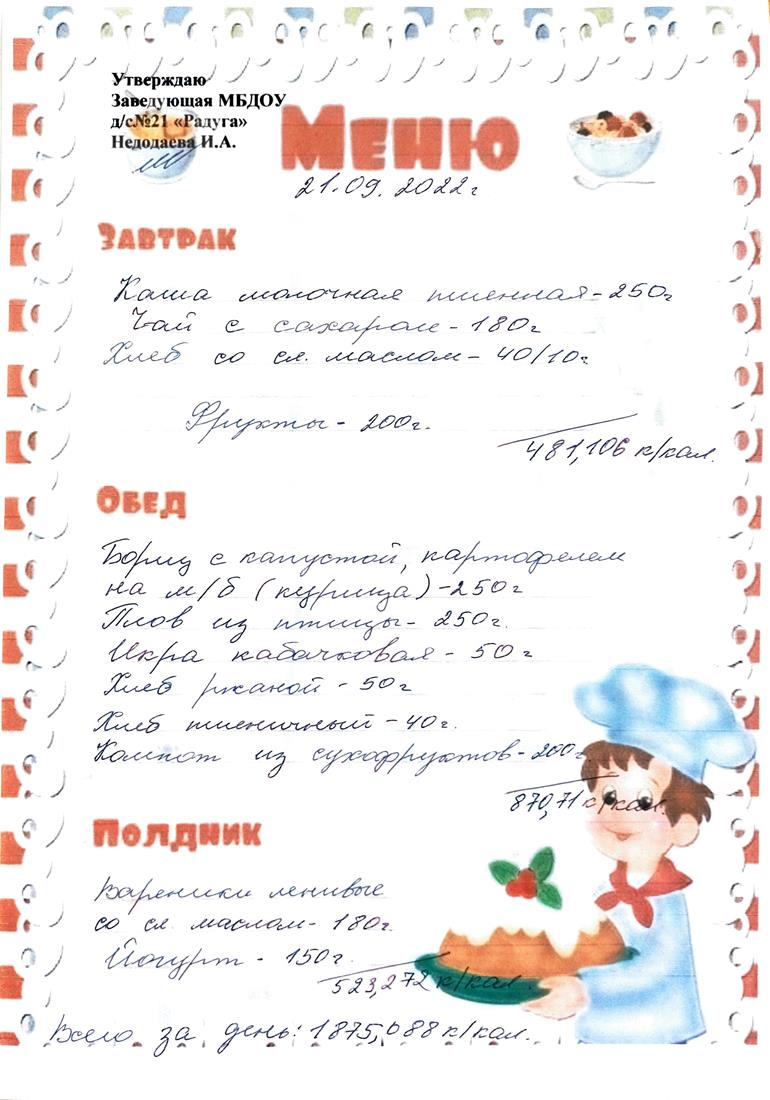 Утверждаю
Заведующая МБДОУ
д/с№21 «Радуга»
Недодаева И.А.
Меню
21.09.2022г
Завтрак
Каша молочная пшенная-250г
Чай с сахаром-180г
Хлеб со сл. маслом-40/10г
Фрукты-200г.
481,106 к/кал.
Обед
Борщ с капустой, картофелем
на м/б (курица)-250г
Плов из птицы-250г.
Икра кабачковая-50г
Хлеб ржаной-50г
Хлеб пшеничный-40г.
Компот из сухофруктов-200г.
870,71 к/кал.
Полдник
Вареники ленивые
со сл. маслом-180г.
Йогурт-150г.
523,272 к/кал.
Всего за день: 1875,088 к/кал.